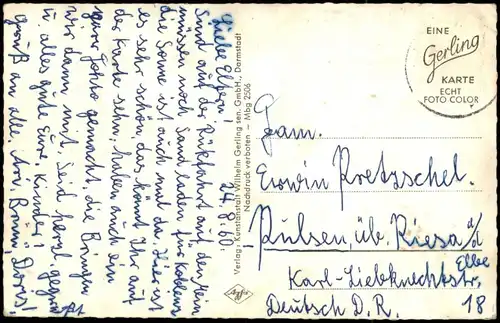 24.8.60.
Liebe Eltern!
Sind auf der Rückfahrt auf den Rhein
müssen noch Sand laden für Koblenz
die Sonne ist auch mal da. Hier ist
es sehr schön, das könnt Ihr auf
der Karte sehn. haben auch ein
paar Fotos gemacht, die Bringen
wir dann mit. Seid herzl. gegrüßt
u. alles gute Eure Kinder!
Gruß an alle.
Verlag: Kunstanstalt Wilhelm Gerling sen. GmbH., Darmstadt
Nachdruck verboten — Mbg 2506
EINE
Gerling
KARTE
ECHT
FOTO COLOR
Fam.
Erwin Pretzschel.
Pulsen, üb. Riesa a/d
Elbe
Karl-Liebknechtstr.
18
Deutsch D. R.
Agfa